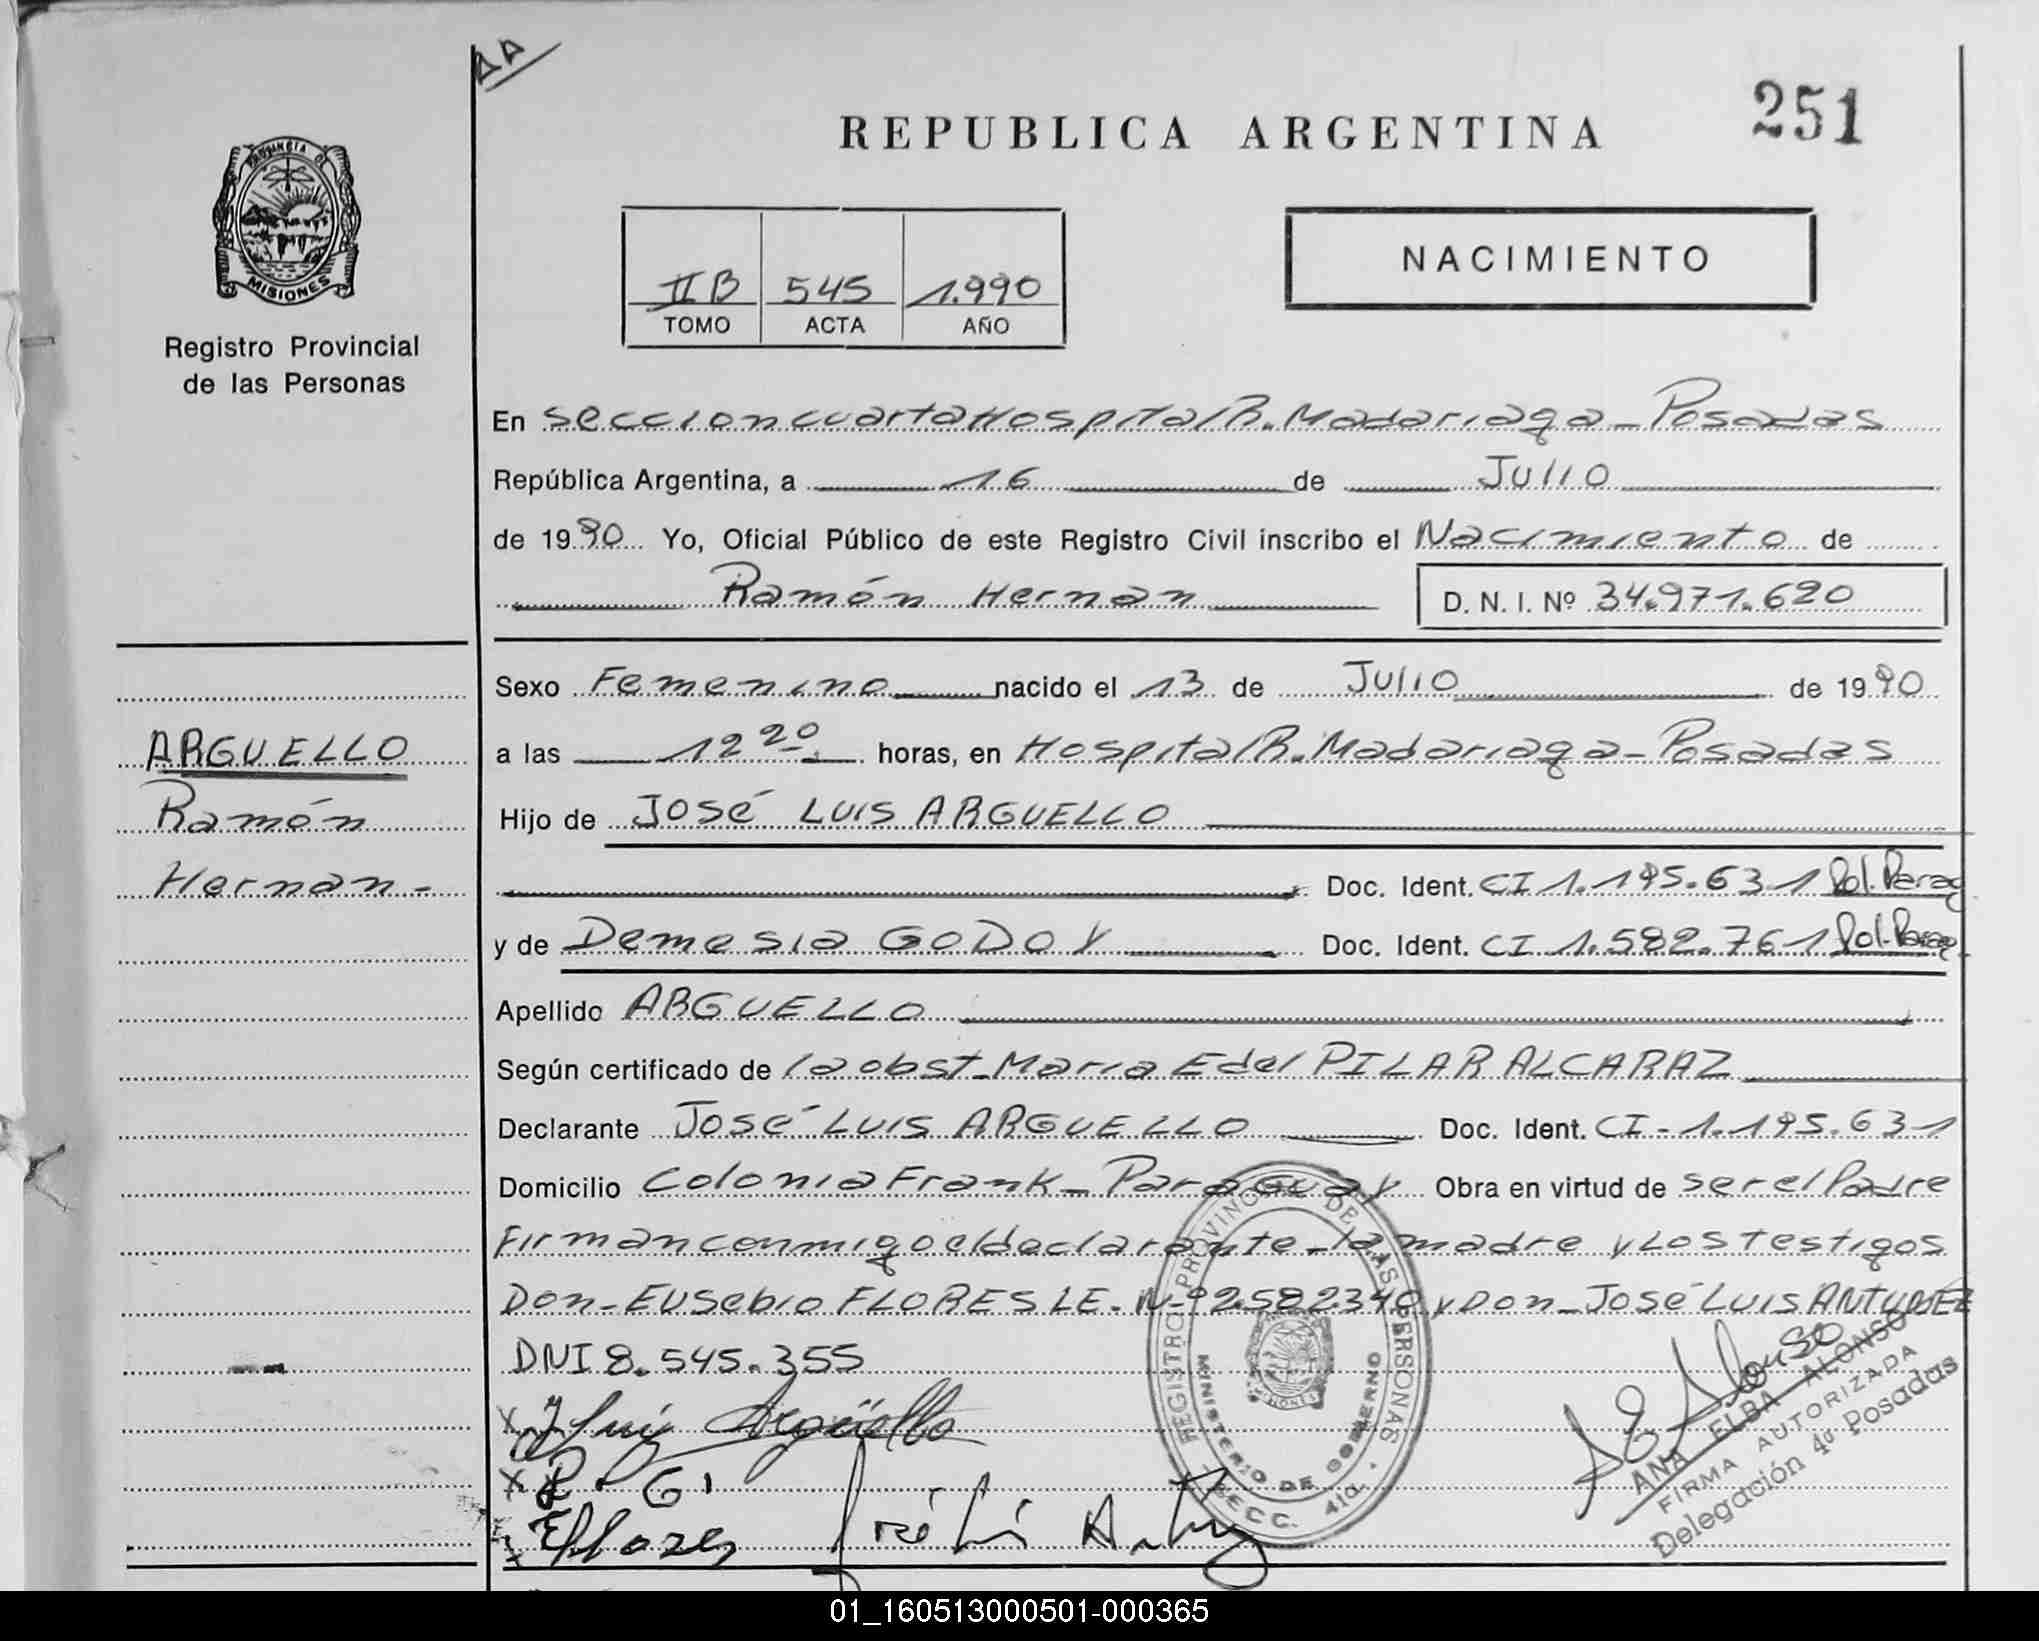 251
REPUBLICA ARGENTINA
PROVINCIA DE
MISIONES
Registro Provincial
de las Personas
II B 545 1.990
TOMO ACTA AÑO
NACIMIENTO
En seccion cuarta Hospital R. Madariaga - Posadas
República Argentina, a 16 de Julio
de 1990 Yo, Oficial Público de este Registro Civil inscribo el Nacimiento de
Ramón Hernan D. N. I. Nº 34.971.620
Sexo Femenino nacido el 13 de Julio de 1990
a las 12 20 horas, en Hospital R. Madariaga - Posadas
Hijo de José LUIS ARGUELLO
Doc. Ident. CI 1.195.631 Pol. Parag
y de Demesia GODOY Doc. Ident. CI 1.582.761 Pol. Parag
Apellido ARGUELLO
Según certificado de la obst. Maria E del PILAR ALCARAZ
Declarante José LUIS ARGUELLO Doc. Ident. CI - 1.195.631
Domicilio Colonia Frank - Paraguay Obra en virtud de ser el Padre
Firman conmigo el declarante - la madre y Los testigos
Don - Eusebio FLORES LE. Nº 2.582.340 y Don - José Luis ANTUNEZ
DNI 8.545.355
ARGUELLO
Ramón
Hernan -
J Luis Argüello
D. G.
E Flores José Luis Antunez
REGISTRO PROVINCIAL DE LAS PERSONAS
MINISTERIO DE GOBIERNO
SECC. 4ta.
MISIONES
A E Alonso
ANA ELBA ALONSO
FIRMA AUTORIZADA
Delegación 4a Posadas
01_160513000501-000365